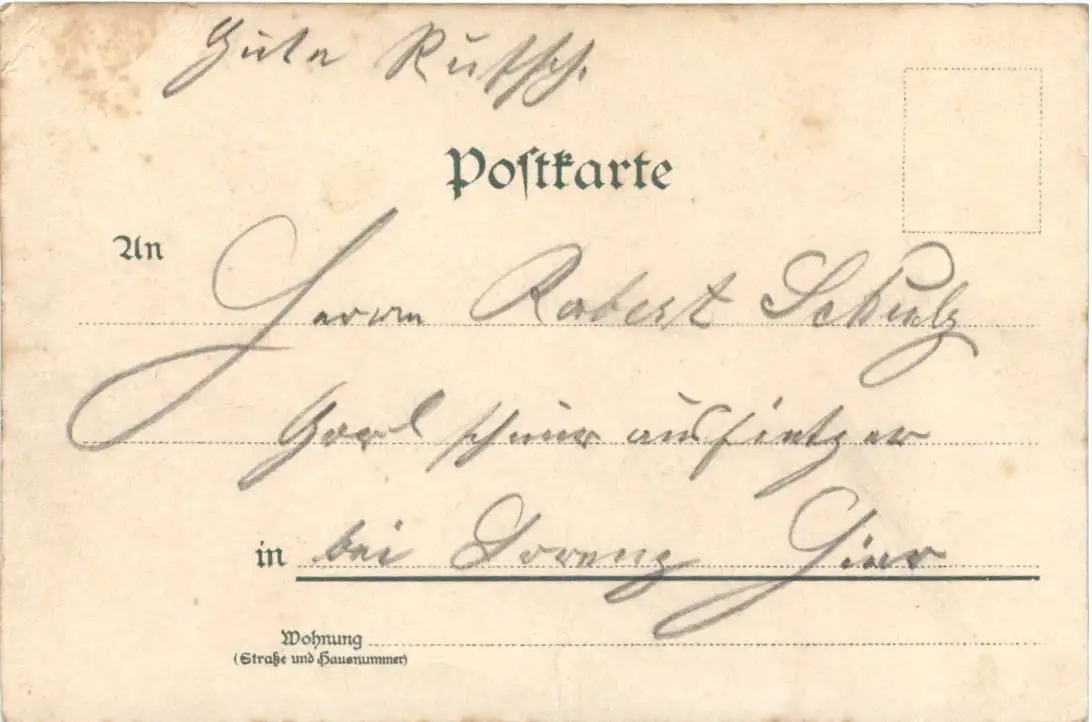 Gute Rutsch.
Postkarte
An
Herrn Robert Schulz
aufsetzer
in bei Lorenz Hier
Wohnung
(Straße und Hausnummer)